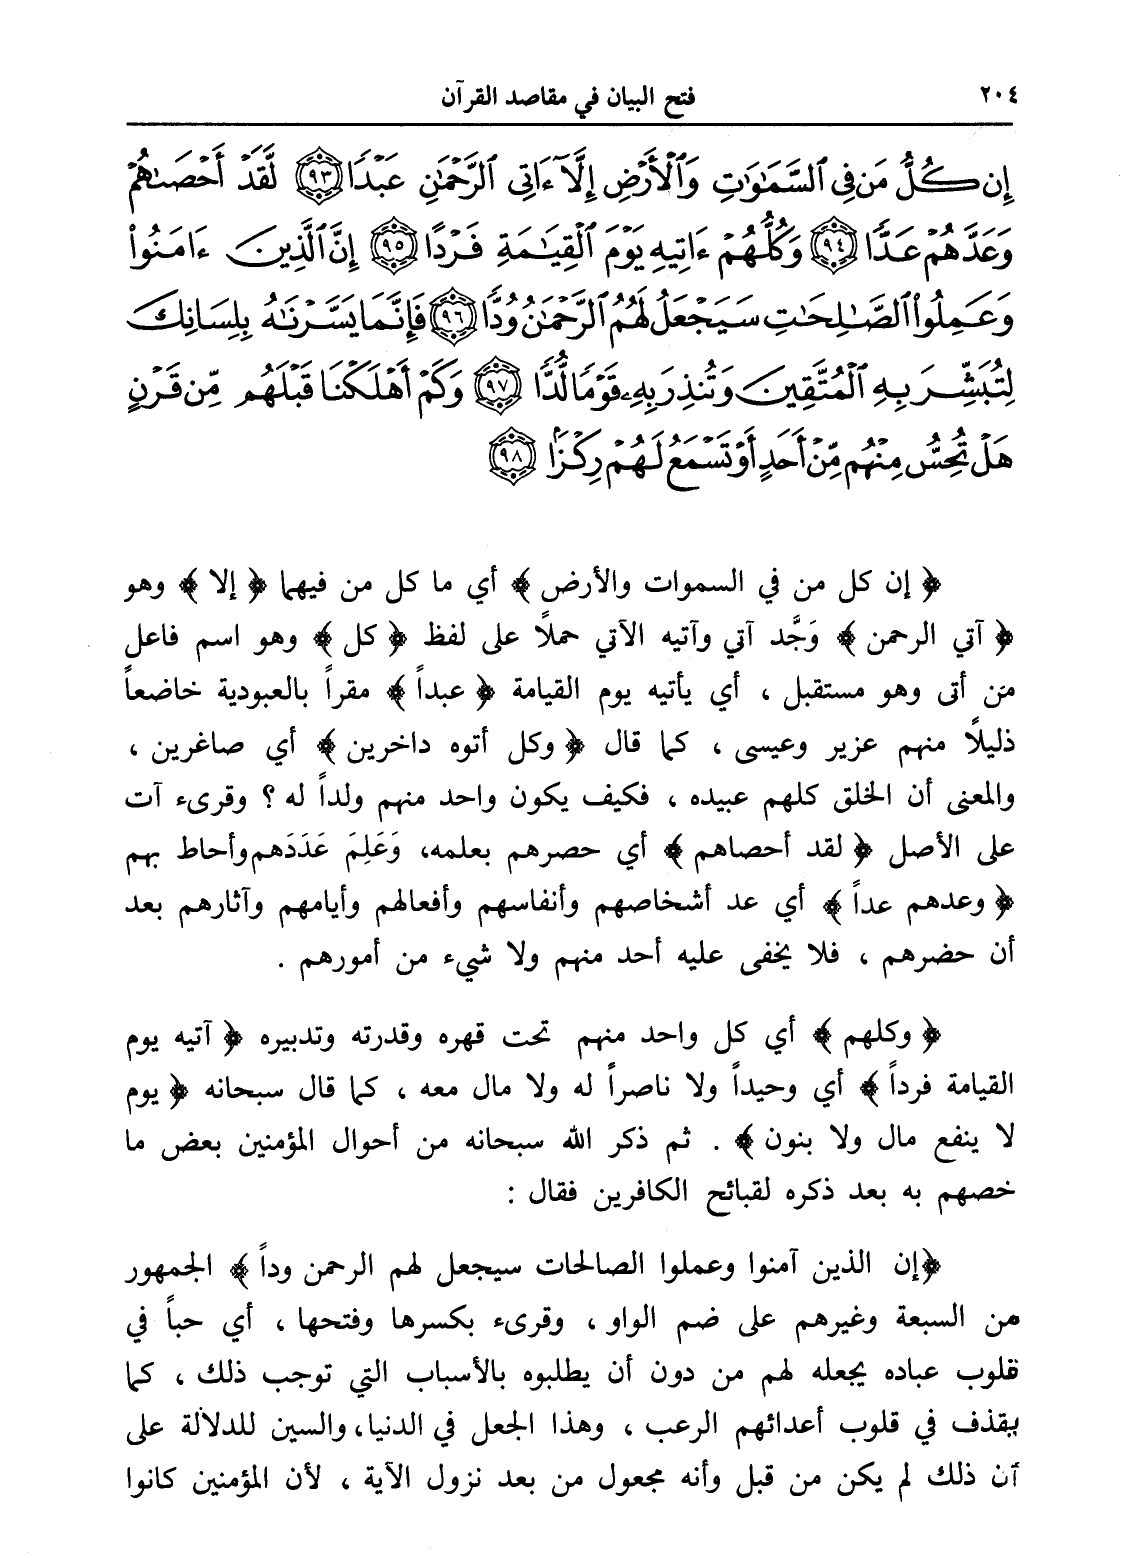 ٢٠٤ فتح البيان في مقاصد القرآن
إِن كُلُّ مَن فِي ٱلسَّمَٰوَٰتِ وَٱلْأَرْضِ إِلَّآ ءَاتِي ٱلرَّحْمَٰنِ عَبْدًا ﴿٩٣﴾ لَّقَدْ أَحْصَىٰهُمْ
وَعَدَّهُمْ عَدًّا ﴿٩٤﴾ وَكُلُّهُمْ ءَاتِيهِ يَوْمَ ٱلْقِيَٰمَةِ فَرْدًا ﴿٩٥﴾ إِنَّ ٱلَّذِينَ ءَامَنُوا۟
وَعَمِلُوا۟ ٱلصَّٰلِحَٰتِ سَيَجْعَلُ لَهُمُ ٱلرَّحْمَٰنُ وُدًّا ﴿٩٦﴾ فَإِنَّمَا يَسَّرْنَٰهُ بِلِسَانِكَ
لِتُبَشِّرَ بِهِ ٱلْمُتَّقِينَ وَتُنذِرَ بِهِۦ قَوْمًا لُّدًّا ﴿٩٧﴾ وَكَمْ أَهْلَكْنَا قَبْلَهُم مِّن قَرْنٍ
هَلْ تُحِسُّ مِنْهُم مِّنْ أَحَدٍ أَوْ تَسْمَعُ لَهُمْ رِكْزًۢا ﴿٩٨﴾
﴿ إن كل من في السموات والأرض ﴾ أي ما كل من فيهما ﴿ إلا ﴾ وهو
﴿ آتي الرحمن ﴾ وَحَّد آتي وآتيه الآتي حملاً على لفظ ﴿ كل ﴾ وهو اسم فاعل
من أتى وهو مستقبل ، أي يأتيه يوم القيامة ﴿ عبداً ﴾ مقراً بالعبودية خاضعاً
ذليلاً منهم عزير وعيسى ، كما قال ﴿ وكل أتوه داخرين ﴾ أي صاغرين ،
والمعنى أن الخلق كلهم عبيده ، فكيف يكون واحد منهم ولداً له ؟ وقرىء آت
على الأصل ﴿ لقد أحصاهم ﴾ أي حصرهم بعلمه، وَعَلِمَ عَدَدَهم وأحاط بهم
﴿ وعدهم عداً ﴾ أي عد أشخاصهم وأنفاسهم وأفعالهم وأيامهم وآثارهم بعد
أن حضرهم ، فلا يخفى عليه أحد منهم ولا شيء من أمورهم .
﴿ وكلهم ﴾ أي كل واحد منهم تحت قهره وقدرته وتدبيره ﴿ آتيه يوم
القيامة فرداً ﴾ أي وحيداً ولا ناصراً له ولا مال معه ، كما قال سبحانه ﴿ يوم
لا ينفع مال ولا بنون ﴾ . ثم ذكر الله سبحانه من أحوال المؤمنين بعض ما
خصهم به بعد ذكره لقبائح الكافرين فقال :
﴿إن الذين آمنوا وعملوا الصالحات سيجعل لهم الرحمن وداً ﴾ الجمهور
من السبعة وغيرهم على ضم الواو ، وقرىء بكسرها وفتحها ، أي حباً في
قلوب عباده يجعله لهم من دون أن يطلبوه بالأسباب التي توجب ذلك ، كما
يقذف في قلوب أعدائهم الرعب ، وهذا الجعل في الدنيا، والسين للدلالة على
أن ذلك لم يكن من قبل وأنه مجعول من بعد نزول الآية ، لأن المؤمنين كانوا